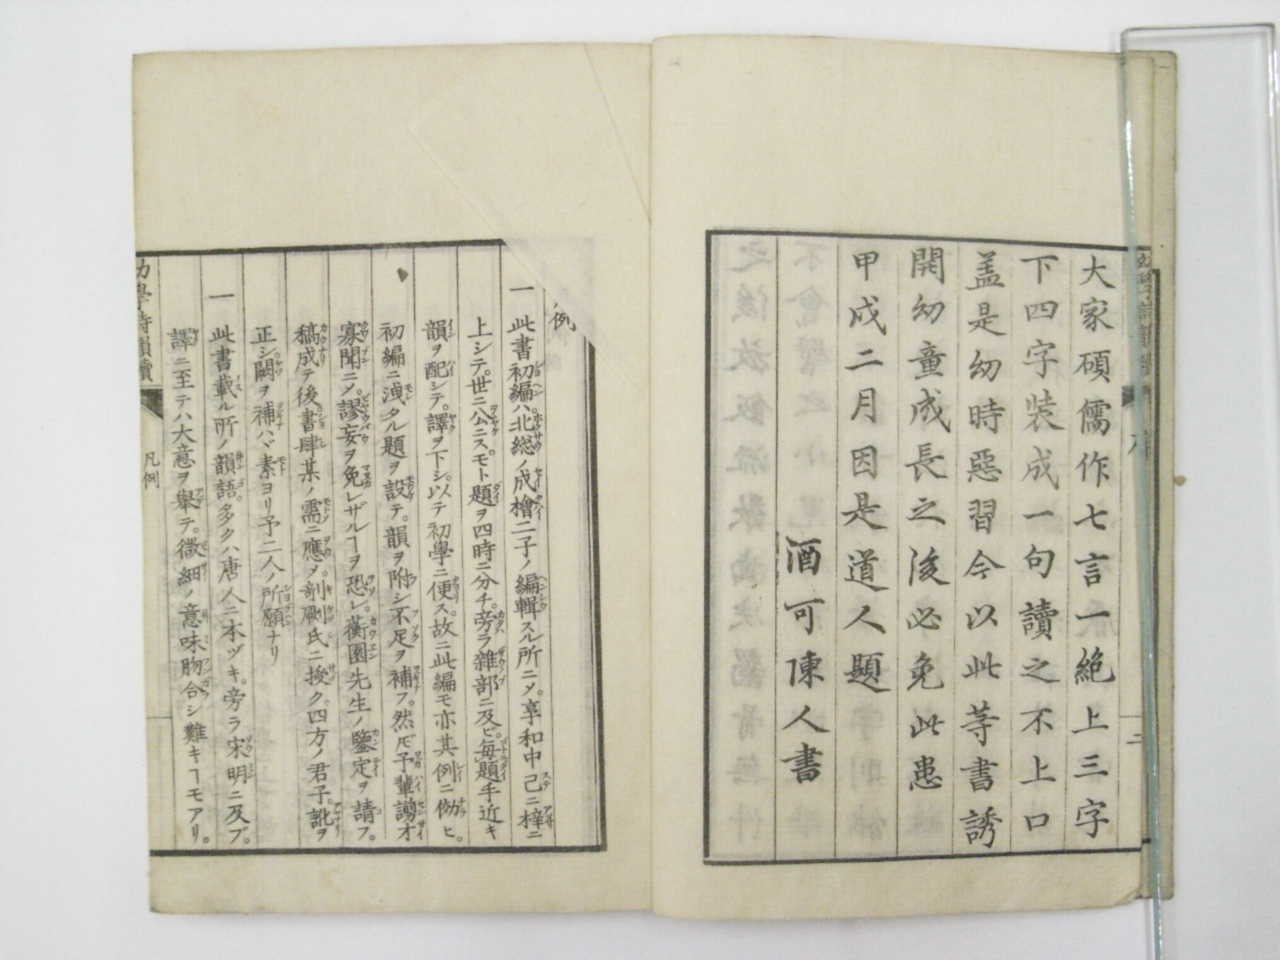 大家碩儒作七言一絶上三字
下四字装成一句讀之不上口
盖是幼時惡習今以此等書誘
開幼童成長之後必免此患
甲戌二月因是道人題
酒可陳人書
例
一此書初編ハ北総ノ成檜二子ノ編輯スル所ニメ享和中已ニ梓ニ
上シテ世ニ公ニスモト題ヲ四時ニ分チ旁ラ雜部ニ及ヒ毎題手近キ
韻ヲ配シテ譯ヲ下シ以テ初學ニ便ス故ニ此編モ亦其例ニ倣ヒ
初編ニ洩タル題ヲ設テ韻ヲ附シ不足ヲ補フ然ㇾ𪜈予輩謭才
寡聞ニメ謬妄ヲ免レザルヿヲ恐レ蘅園先生ノ鑒定ヲ請フ
稿成テ後書肆某ノ需ニ應メ剞劂氏ニ授ク四方ノ君子訛ヲ
正シ闕ヲ補ハヾ素ヨリ予二人ノ所願ナリ
一此書載ル所ノ韻語多クハ唐人ニ本ヅキ旁ラ宋明ニ及ブ
譯ニ至テハ大意ヲ擧テ微細ノ意味脗合シ難キヿモアリ
幼學詩韻續
凡例